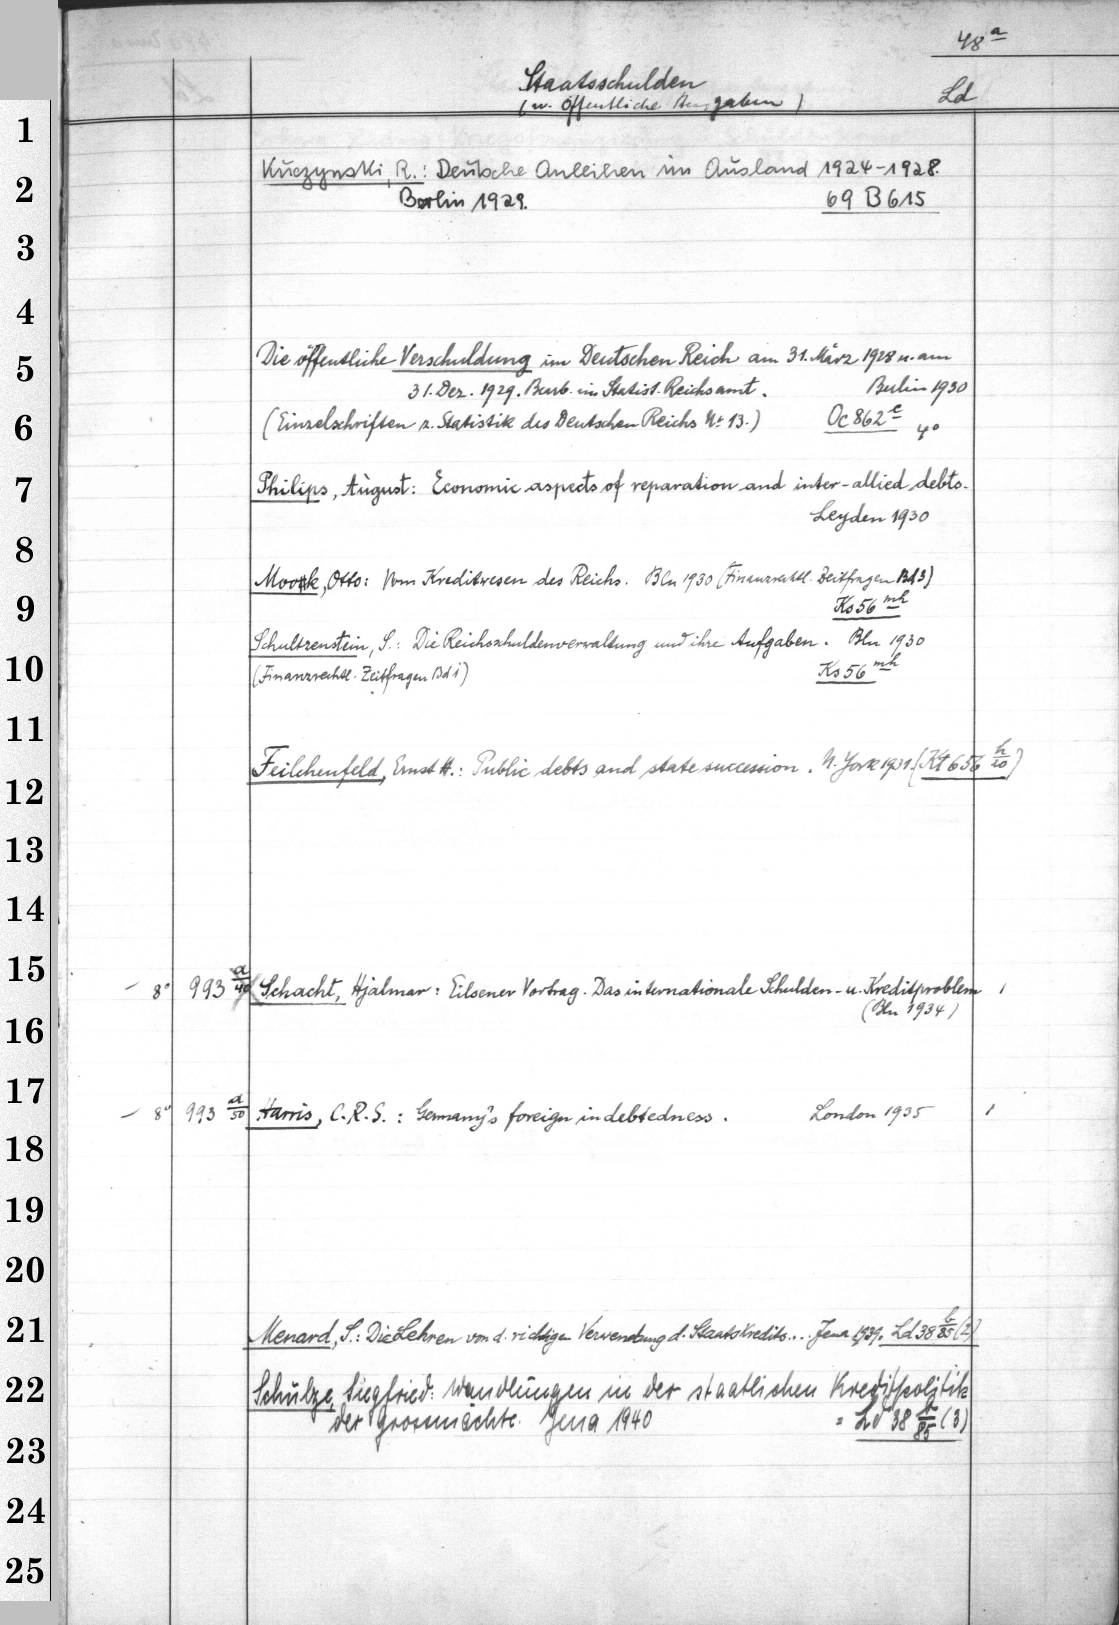 48 a
Staatsschulden
(u. öffentliche Ausgaben)
Ld
1
Kuczynski, R.: Deutsche Anleihen im Ausland 1924-1928.
2
Berlin 1929. 69 B 615
3
4
Die öffentliche Verschuldung im Deutschen Reich am 31. März 1928 u. am
5
31. Dez. 1929. Bearb. im Statist. Reichsamt. Berlin 1930
6
(Einzelschriften z. Statistik des Deutschen Reichs Nr 13.) Oc 862 e 4°
7
Philips, August: Economic aspects of reparation and inter-allied debts.
Leyden 1930
8
Otto: Vom Kreditwesen des Reichs. Bln 1930 (Finanzrechtl. Zeitfragen Bd 3)
9
Ks 56 mh
Schultzenstein, S.: Die Reichsschuldenverwaltung und ihre Aufgaben. Bln 1930
10
(Finanzrechtl. Zeitfragen Bd 1) Ks 56 mh
11
Feilchenfeld, Ernst H.: Public debts and state succession. N. York 1931. (Kt 656 h/20)
12
13
14
15
– 8° 993 a/40 Schacht, Hjalmar: Eilsener Vortrag. Das internationale Schulden- u. Kreditproblem 1
(Bln 1934)
16
17
– 8° 993 a/50 Harris, C.R.S.: Germany's foreign indebtedness. London 1935 1
18
19
20
21
Menard, S.: Die Lehren von d. richtigen Verwendung d. Staatskredits... Jena 1939. Ld 38 h/85 (2)
22
Schulze, Siegfried: Wandlungen in der staatlichen Kreditpolitik
der Grossmächte. Jena 1940 = Ld 38 h/85 (3)
23
24
25